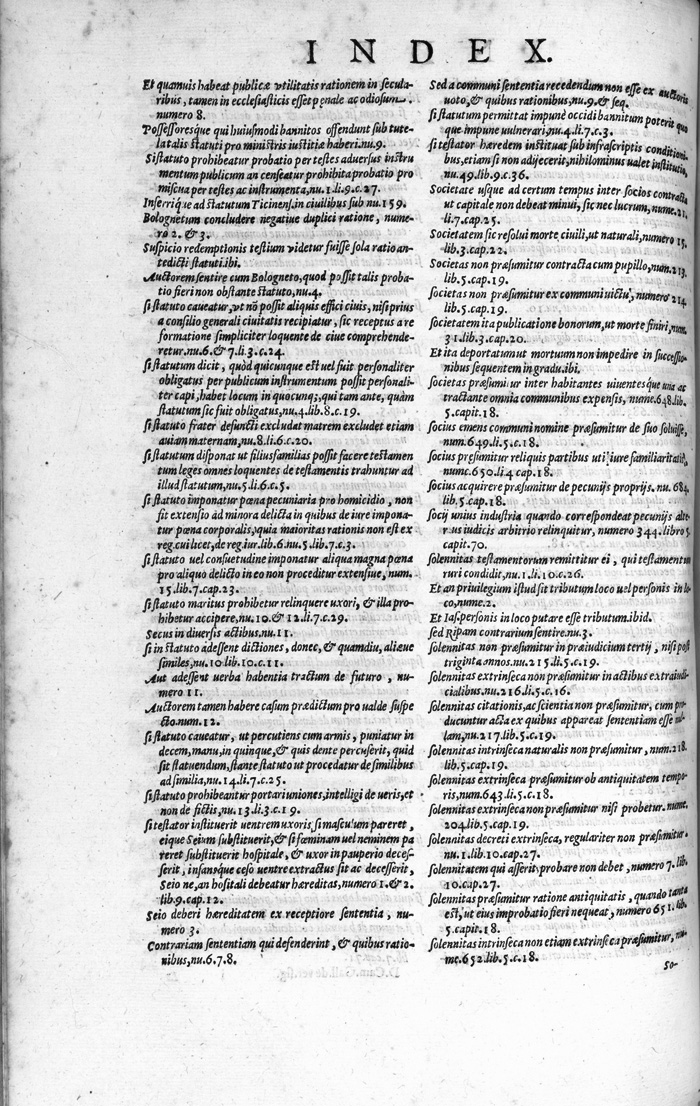 INDEX.
Et quamuis habeat publicæ vtilitatis rationem in secula-
ribus, tamen in ecclesiasticis esset pęnale ac odiosum.
numero 8.
Possessoresque qui huiusmodi bannitos offendunt sub tute-
la talis statuti pro ministris iustitiæ haberi.nu.9.
Si statuto prohibeatur probatio per testes aduersus instru
mentum publicum an censeatur prohibita probatio pro
miscua per testes ac instrumenta, nu.1.li.9.c.27.
Inserrique ad statutum Ticinens.in ciuilibus sub nu.159.
Bolognetum concludere negatiue duplici ratione, nume-
ro 2. & 3.
Suspicio redemptionis testium videtur fuisse sola ratio an-
tedicti statuti.ibi.
Auctorem sentire cum Bologneto, quod possit talis proba-
tio fieri non obstante statuto, nu.4.
si statuto caueatur, vt nō possit aliquis effici ciuis, nisi prius
a consilio generali ciuitatis recipiatur, sic receptus a re
formatione simpliciter loquente de ciue comprehende-
retur.nu.6.& 7.li.3.c.24.
si statutum dicit, quòd quicunque est uel fuit personaliter
obligatus per publicum instrumentum possit personali-
ter capi, habet locum in quocunq;, qui tam ante, quàm
statutum sic fuit obligatus, nu.4.lib.8.c.19.
si statuto frater defuncti excludat matrem excludet etiam
auiam maternam, nu.8.li.6.c.20.
si statutum disponat ut filiusfamilias possit facere testamen
tum leges omnes loquentes de testamentis trahuntur ad
illud statutum, nu.5.li.6.c.5.
si statuto imponatur pœna pecuniaria pro homicidio, non
fit extensio ad minora delicta in quibus de iure impona-
tur pœna corporalis, quia maioritas rationis non est ex
reg.cui licet, de reg.iur.lib.6.nu.5.lib.7.c.3.
si statuto uel consuetudine imponatur aliqua magna pœna
pro aliquo delicto in eo non proceditur extensiue, num.
15.lib.7.cap.23.
si statuto maritus prohibetur relinquere uxori, & illa pro-
hibetur accipere, nu.10.& 12.li.7.c.29.
Secus in diuersis actibus.nu.11.
si in statuto adessent dictiones, donec, & quamdiu, aliæue
similes, nu.10.lib.10.c.11.
Aut adessent uerba habentia tractum de futuro, nu-
mero 11.
Auctorem tamen habere casum prædictum pro valde suspe
cto.num.12.
si statuto caueatur, ut percutiens cum armis, puniatur in
decem, manu, in quinque, & quis dente percuserit, quid
sit statuendum, stante statuto ut procedatur de similibus
ad similia, nu.14.li.7.c.25.
si statuto prohibeantur portari uniones, intelligi de ueris, et
non de fictis, nu.13.li.3.c.19.
si testator instituerit uentrem uxoris, si masculum pareret,
eique Seium substituerit, & si fœminam uel neminem pa
reret substituerit hospitale, & uxor in pauperio deces-
serit, infansque ceso uentre extractus sit ac decesserit,
Seio ne, an hospitali debeatur hæreditas, numero 1.& 2.
lib.9.cap.12.
Seio deberi hæreditatem ex receptiore sententia, nu-
mero 3.
Contrariam sententiam qui defenderint, & quibus ratio-
nibus, nu.6.7.8.
Sed a communi sententia recedendum non esse ex auctoris
uoto, & quibus rationibus, nu.9.& seq.
si statutum permittat impunè occidi bannitum poterit quo
que impune uulnerari, nu.4.li.7.c.3.
si testator hæredem instituat sub infrascriptis conditioni-
bus, etiam si non adijecerit, nihilominus ualet institutio,
nu.49.lib.9.c.36.
Societate usque ad certum tempus inter socios contracta
ut capitale non debeat minui, sic nec lucrum, nume.21.
li.7.cap.25.
Societatem sic resolui morte ciuili, ut naturali, numero 15.
lib.3.cap.22.
Societas non præsumitur contracta cum pupillo, num.213.
lib.5.cap.19.
societas non præsumitur ex communi uictu, numero 214.
lib.5.cap.19.
societatem ita publicatione bonorum, ut morte finiri, num.
31.lib.3.cap.20.
Et ita deportatum ut mortuum non impedire in successio-
nibus sequentem in gradu.ibi.
societas præsumitur inter habitantes uiuentesque una ac
tractante omnia communibus expensis, nume.648.lib.
5.capit.18.
Socius emens communi nomine præsumitur de suo soluisse,
num.649.li.5.c.18.
Socius presumitur reliquis partibus uti iure familiaritatis,
nume.650.li.4 cap.18.
Socius acquirere præsumitur de pecunijs proprijs. nu.684.
lib.5.cap.18.
Socij unius industria quando correspondeat pecunijs alte-
rius iudicis arbitrio relinquitur, numero 344.libro 5.
capit.70.
solennitas testamentorum remittitur ei, qui testamentum
ruri condidit, nu.1.li.10.c.26.
Et an priuilegium istud sit tributum loco uel personis in lo
co, nume.2.
Et Ias.personis in loco putare esse tributum.ibid.
sed Ripam contrarium sentire.nu.3.
solennitas non præsumitur in præiudicium tertij, nisi post
triginta annos.nu.215.li.5.c.19.
solennitas extrinseca non præsumitur in actibus extraiudi-
cialibus.nu.216.li.5.c.16.
solennitas citationis, ac scientia non præsumitur, cum pro-
ducuntur acta ex quibus appareat sententiam esse nul-
lam, nu.217.lib.5.c.19.
solennitas intrinseca naturalis non præsumitur, num.218.
lib.5.cap.19.
solennitas extrinseca præsumitur ob antiquitatem tempo-
ris, num.643.li.5.c.18.
solennitas extrinseca non præsumitur nisi probetur. nume.
204.lib.5.cap.19.
solennitas decreti extrinseca, regulariter non præsumitur.
nu.1.lib.10.cap.27.
solennitatem qui asserit, probare non debet, numero 7.lib.
10.cap.27.
solennitas præsumitur ratione antiquitatis, quando tanta
est, ut eius improbatio fieri nequeat, numero 651.lib.
5.capit.18.
solennitas intrinseca non etiam extrinseca præsumitur, nu-
me.652.lib.5.c.18.
so-